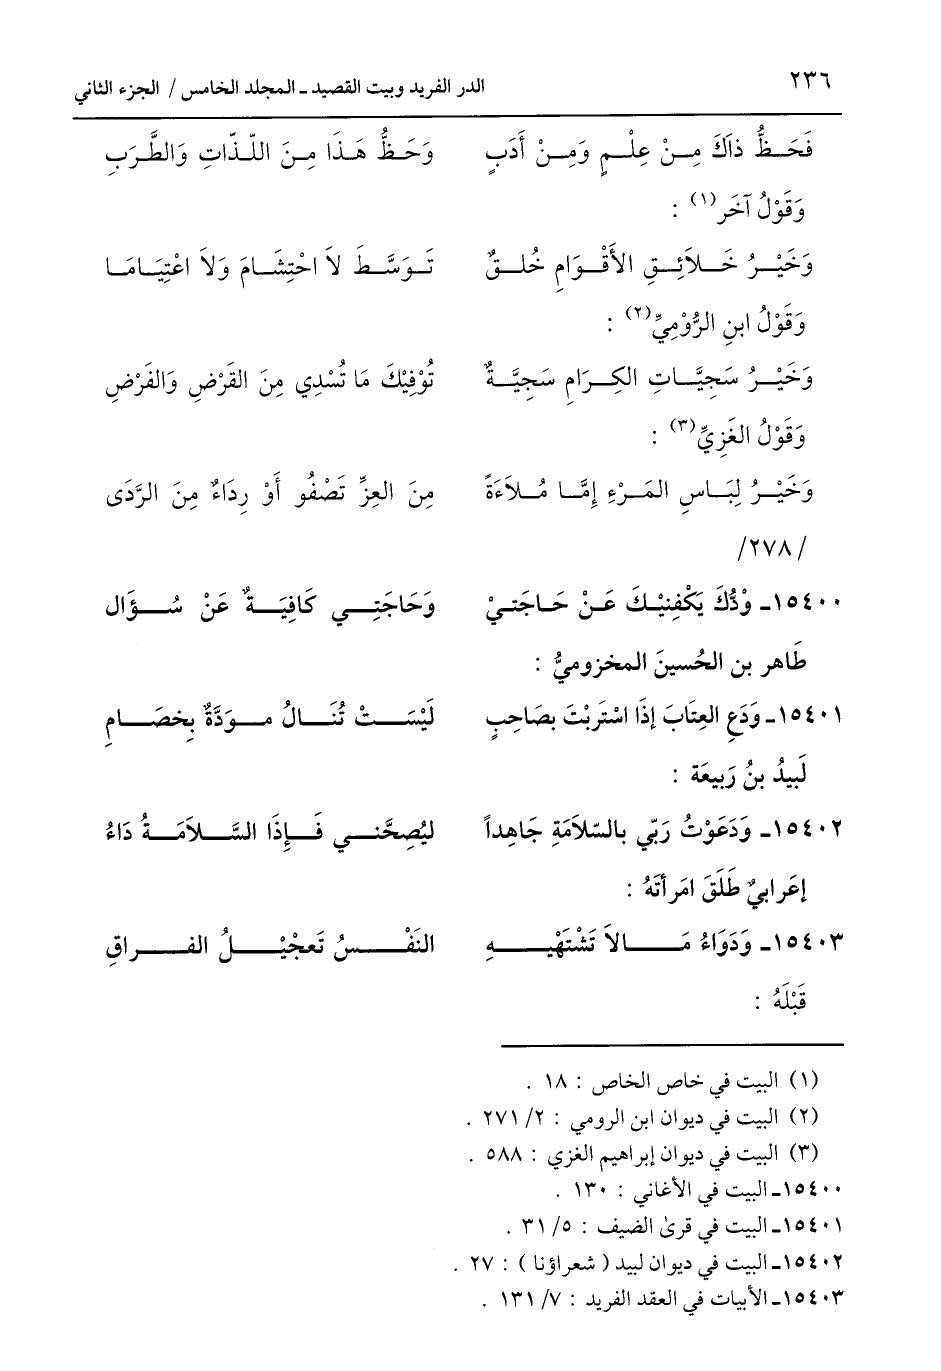 ٢٣٦ الدر الفريد وبيت القصيد ـ المجلد الخامس / الجزء الثاني
فَحَظُّ ذاكَ مِنْ عِلْمٍ وَمِنْ أَدَبٍ وَحَظُّ هَذَا مِنَ اللّذّاتِ وَالطَّرَبِ
وَقَوْلُ آخَر(١) :
وَخَيْرُ خَلاَئِقِ الأَقْوَامِ خُلقٌ تَوَسَّطَ لاَ احْتِشَامَ وَلاَ اغْتِيَامَا
وَقَوْلُ ابنِ الرُّوْمِيِّ(٢) :
وَخَيْرُ سَجِيَّاتِ الكِرَامِ سَجِيَّةٌ تُوْفِيْكَ مَا تُسْدِي مِنَ القَرْضِ وَالفَرْضِ
وَقَوْلُ الغَزِيِّ(٣) :
وَخَيْرُ لِبَاسِ المَرْءِ إِمَّا مُلاَءَةً مِنَ العِزِّ تَضْفُو أَوْ رِدَاءٌ مِنَ الرَّدَى
/٢٧٨/
١٥٤٠٠ـ وْدُّكَ يَكْفِنيْكَ عَنْ حَاجَتيْ وَحَاجَتِي كَافِيَةٌ عَنْ سُؤَال
طَاهر بن الحُسينَ المخزوميُّ :
١٥٤٠١ـ وَدَعِ العِتَابَ إذَا اسْتَربْتَ بصَاحِبٍ لَيْسَتْ تُنَالُ مودَّةٌ بِخصَامِ
لَبيدُ بنُ رَبيعَة :
١٥٤٠٢ـ وَدَعَوْتُ رَبّي بالسّلاَمَةِ جَاهِداً ليُصِحَّني فَإِذَا السَّلاَمَةُ دَاءُ
إعَرابيٌ طَلَقَ امرأتَهُ :
١٥٤٠٣ـ وَدَوَاءُ مَالاَ تَشْتَهْيهِ النَفْسُ تَعجْيْلُ الفراقِ
قَبْلَهُ :
(١) البيت في خاص الخاص : ١٨ .
(٢) البيت في ديوان ابن الرومي : ٢/ ٢٧١ .
(٣) البيت في ديوان إبراهيم الغزي : ٥٨٨ .
١٥٤٠٠ـ البيت في الأغاني : ١٣٠ .
١٥٤٠١ـ البيت في قرىٰ الضيف : ٥/ ٣١ .
١٥٤٠٢ـ البيت في ديوان لبيد ( شعراؤنا ) : ٢٧ .
١٥٤٠٣ـ الأبيات في العقد الفريد : ٧/ ١٣١ .